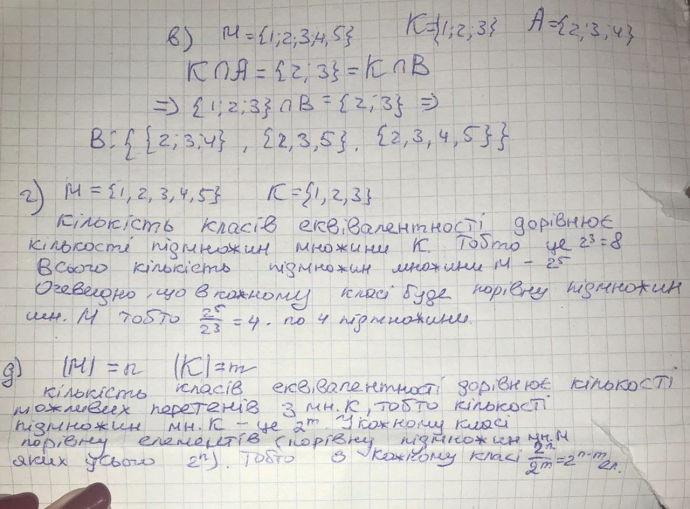 в) M = {1;2;3;4,5} K={1;2;3} A={2;3;4}
K∩A = {2;3} = K∩B
=> {1;2;3}∩B = {2;3} =>
B: { {2;3;4}, {2,3,5}, {2,3,4,5} }
г) M = {1,2,3,4,5} K = {1,2,3}
Кількість класів еквівалентності дорівнює
кількості підмножин множини K. Тобто це 2^3=8
Всього кількість підмножин множини M – 2^5
Очевидно, що в кожному класі буде порівну підмножин
мн. M тобто 2^5/2^3 = 4. по 4 підмножини.
д) |M| = n |K| = m
кількість класів еквівалентності дорівнює кількості
можливих перетенів з мн. K, тобто кількості
підмножин мн. K – це 2^m. У кожному класі
порівну елементів (порівну підмножин мн. M
яких усього 2^n). Тобто в кожному класі 2^n/2^m = 2^n-m